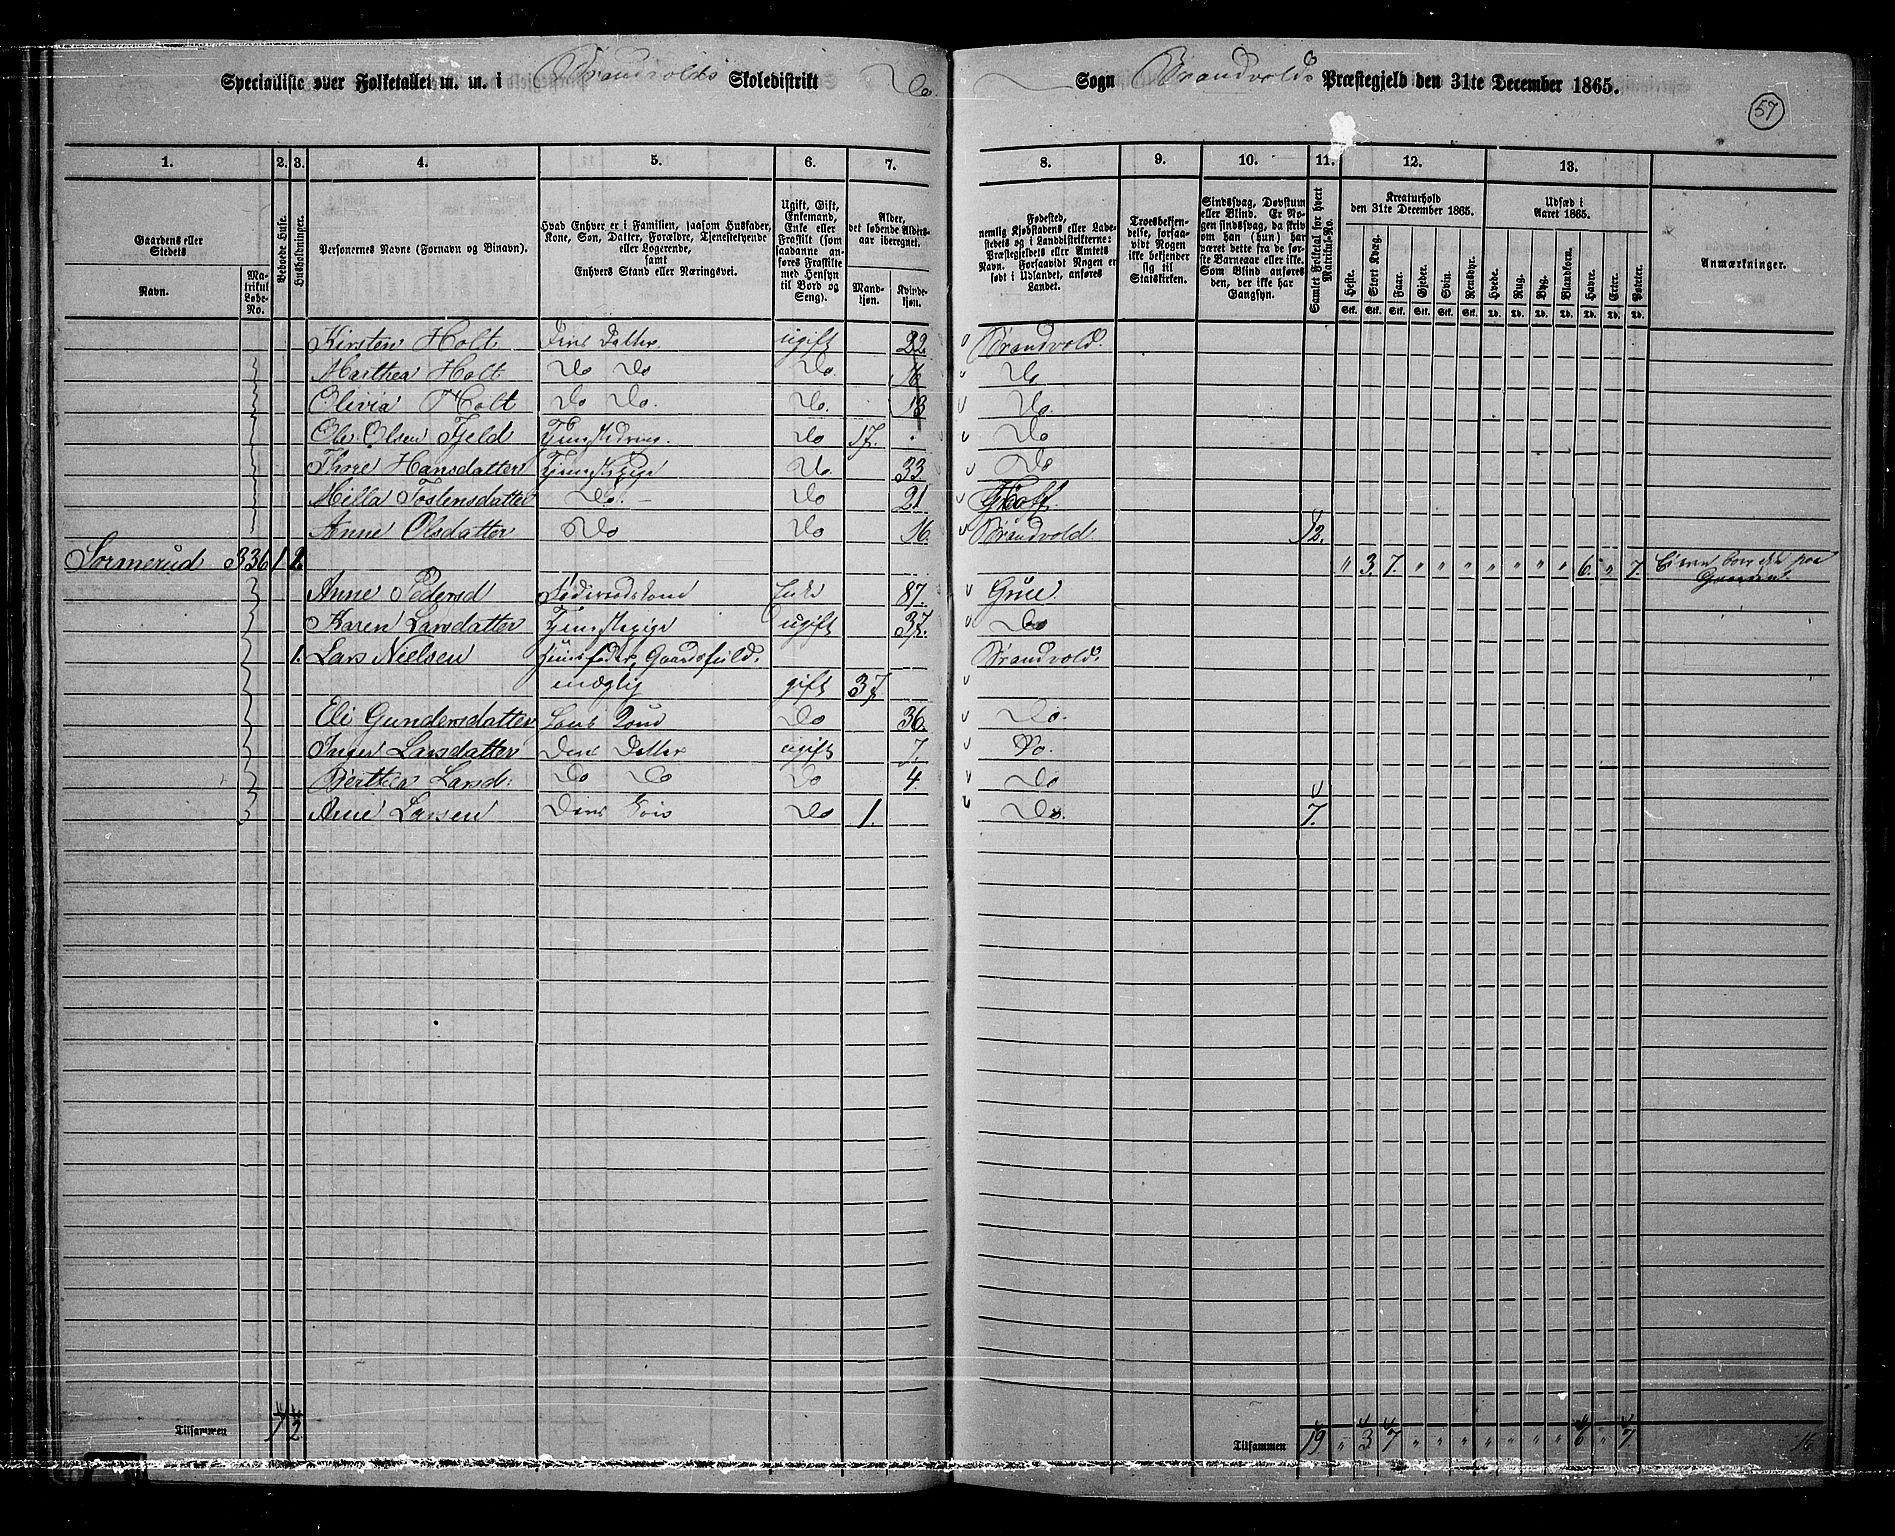 Specialliste over Folketallet m. m. i Brandvolds Skoledistrikt Do. Sogn Brandvolds Præstegjeld den 31te December 1865.
57
1. 2. 3. 4. 5. 6. 7. 8. 9. 10. 11. 12. 13.
Gaardens eller Stedets
Navn.
Matrikul Løbe-No.
Beboede Huse.
Husholdninger.
Personernes Navne (Fornavn og Binavn).
Hvad Enhver er i Familien, saasom Husfader, Kone, Søn, Datter, Forældre, Tjenestetyende eller Logerende, samt Enhvers Stand eller Næringsvei.
Ugift, Gift, Enkemand, Enke eller Fraskilt (som saadanne anføres Fraskilte med Hensyn til Bord og Seng).
Alder, det løbende Aldersaar iberegnet.
Mandkjøn.
Kvindekjøn.
Fødested, nemlig Kjøbstadens eller Ladestedets og i Landdistrikterne: Præstegjeldets eller Amtets Navn. Forsaavidt Nogen er født i Udlandet, anføres Landet.
Troesbekjendelse, forsaavidt Nogen ikke bekjender sig til Statskirken.
Sindssvag, Døvstum eller Blind. Er Nogen sindssvag, da skrives om han (hun) har været dette fra de første Barneaar eller ikke. Som Blind anføres den, der ikke har Gangsyn.
Samlet Folketal for hvert Matrikul-No.
Kreaturhold den 31te December 1865.
Heste. Stort Kvæg. Faar. Gjeder. Svin. Rensdyr.
Stk. Stk. Stk. Stk. Stk. Stk.
Udsæd i Aaret 1865.
Hvede. Rug. Byg. Blandkorn. Havre. Erter. Poteter.
Td. Td. Td. Td. Td. Td. Td.
Anmærkninger.
Kirsten Holt Deres Datter ugift 22. Brandvold.
Marthea Holt Do Do Do. 16 Do
Olivia Holt Do Do. Do. 13 Do.
Ole Olsen Fjeld Tjenestedreng. Do 17. Do
Thore Hansdatter Tjenestepige Do. 33. Do
Milla Tostensdatter Do. Do 21 Hoff.
Anne Olsdatter Do Do 16. Brandvold. 12.
Sormerud 336 1 1. " 3. 7. " " " " " " " 6. " 7.
Anne Pedersd Føderaadskone Enke 87. Grue
Karen Larsdatter Tjenestepige ugift 37. Do
1. Lars Nielsen Huusfader, Gaardsfuld- Brandvold.
mægtig gift 37
Eli Gundersdatter Hans Kone Do 36. Do.
Inger Larsdatter Deres Datter ugift 7. Do.
Berthea Larsd: Do Do Do 4. Do
Arne Larsen Deres Søn Do 1. Do. 7.
Tilsammen 1 2 Tilsammen 19 " 3 7 " " " " " " " 6 " 7 16